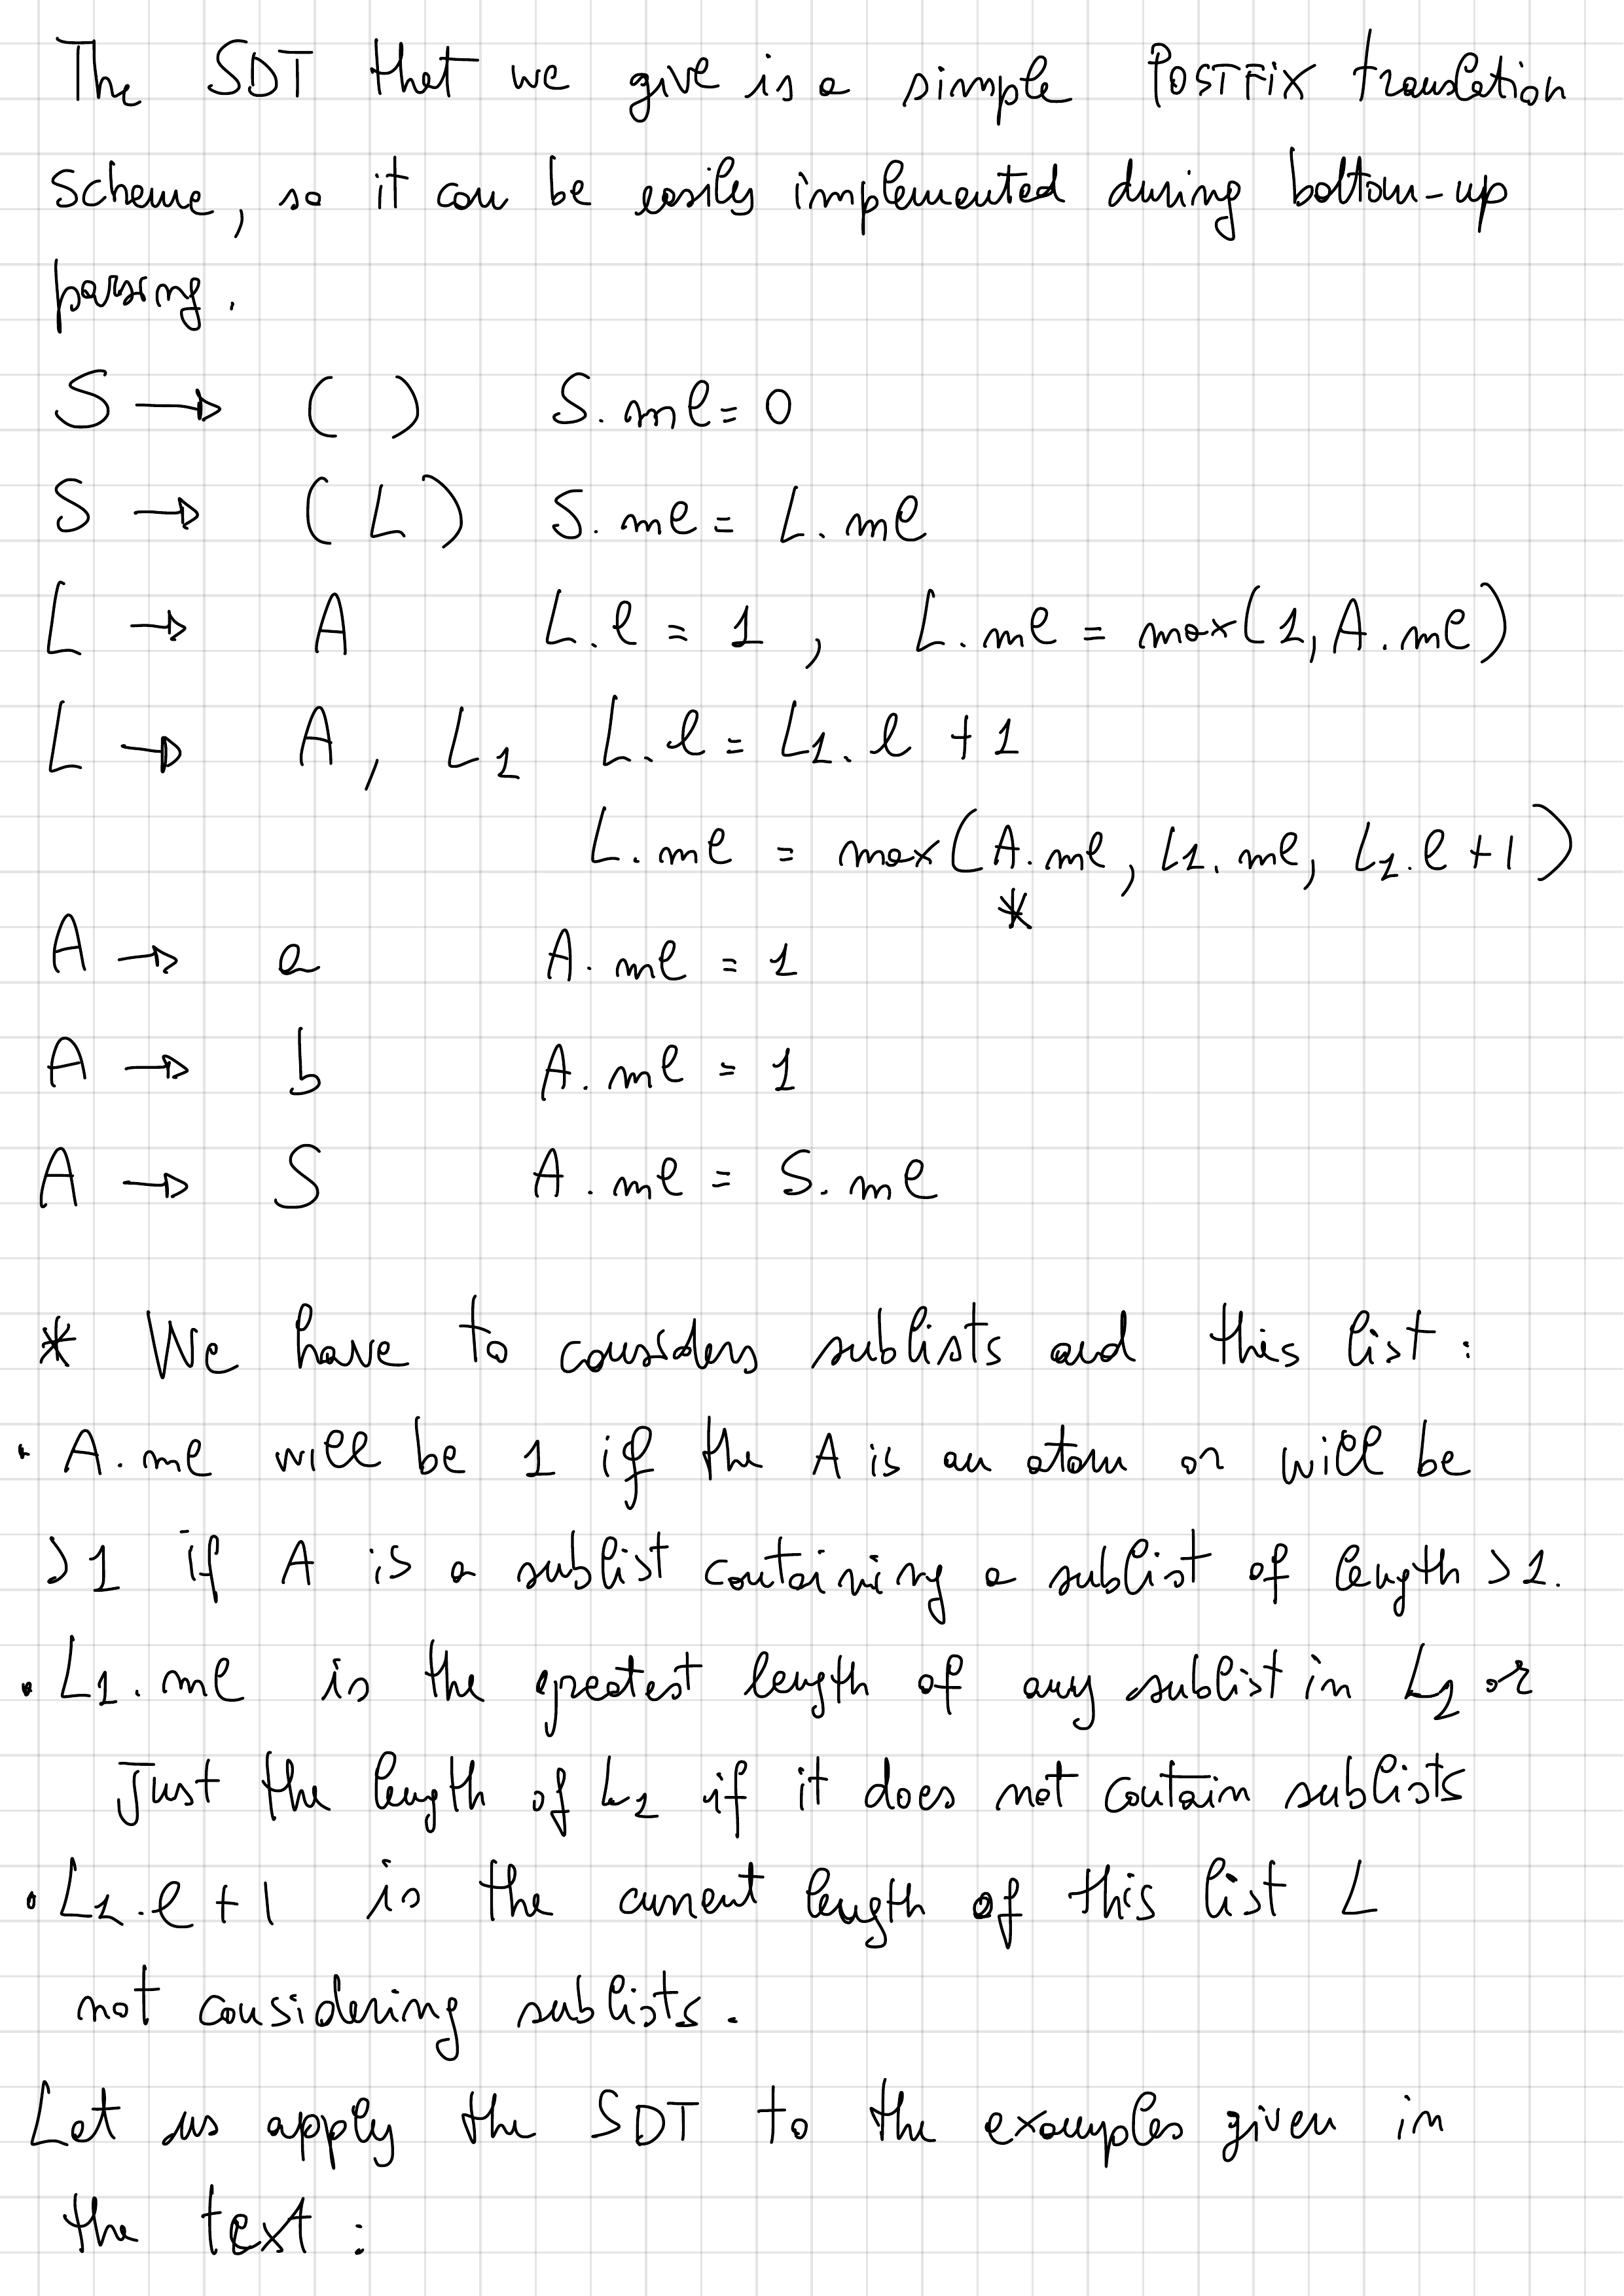 The SDT that we give is a simple POSTFIX translation
scheme, so it can be easily implemented during bottom-up
parsing.
S → ( ) S.ml = 0
S → (L) S.ml = L.ml
L → A L.l = 1 , L.ml = max(1, A.ml)
L → A , L1 L.l = L1.l + 1
L.ml = max(A.ml, L1.ml, L1.l + 1)
*
A → a A.ml = 1
A → b A.ml = 1
A → S A.ml = S.ml
* We have to considers sublists and this list:
· A.ml will be 1 if the A is an atom or will be
>1 if A is a sublist containing a sublist of length >1.
· L1.ml is the greatest length of any sublist in L1 or
Just the length of L1 if it does not contain sublists
· L1.l + 1 is the current length of this list L
not considering sublists.
Let us apply the SDT to the examples given in
the text: